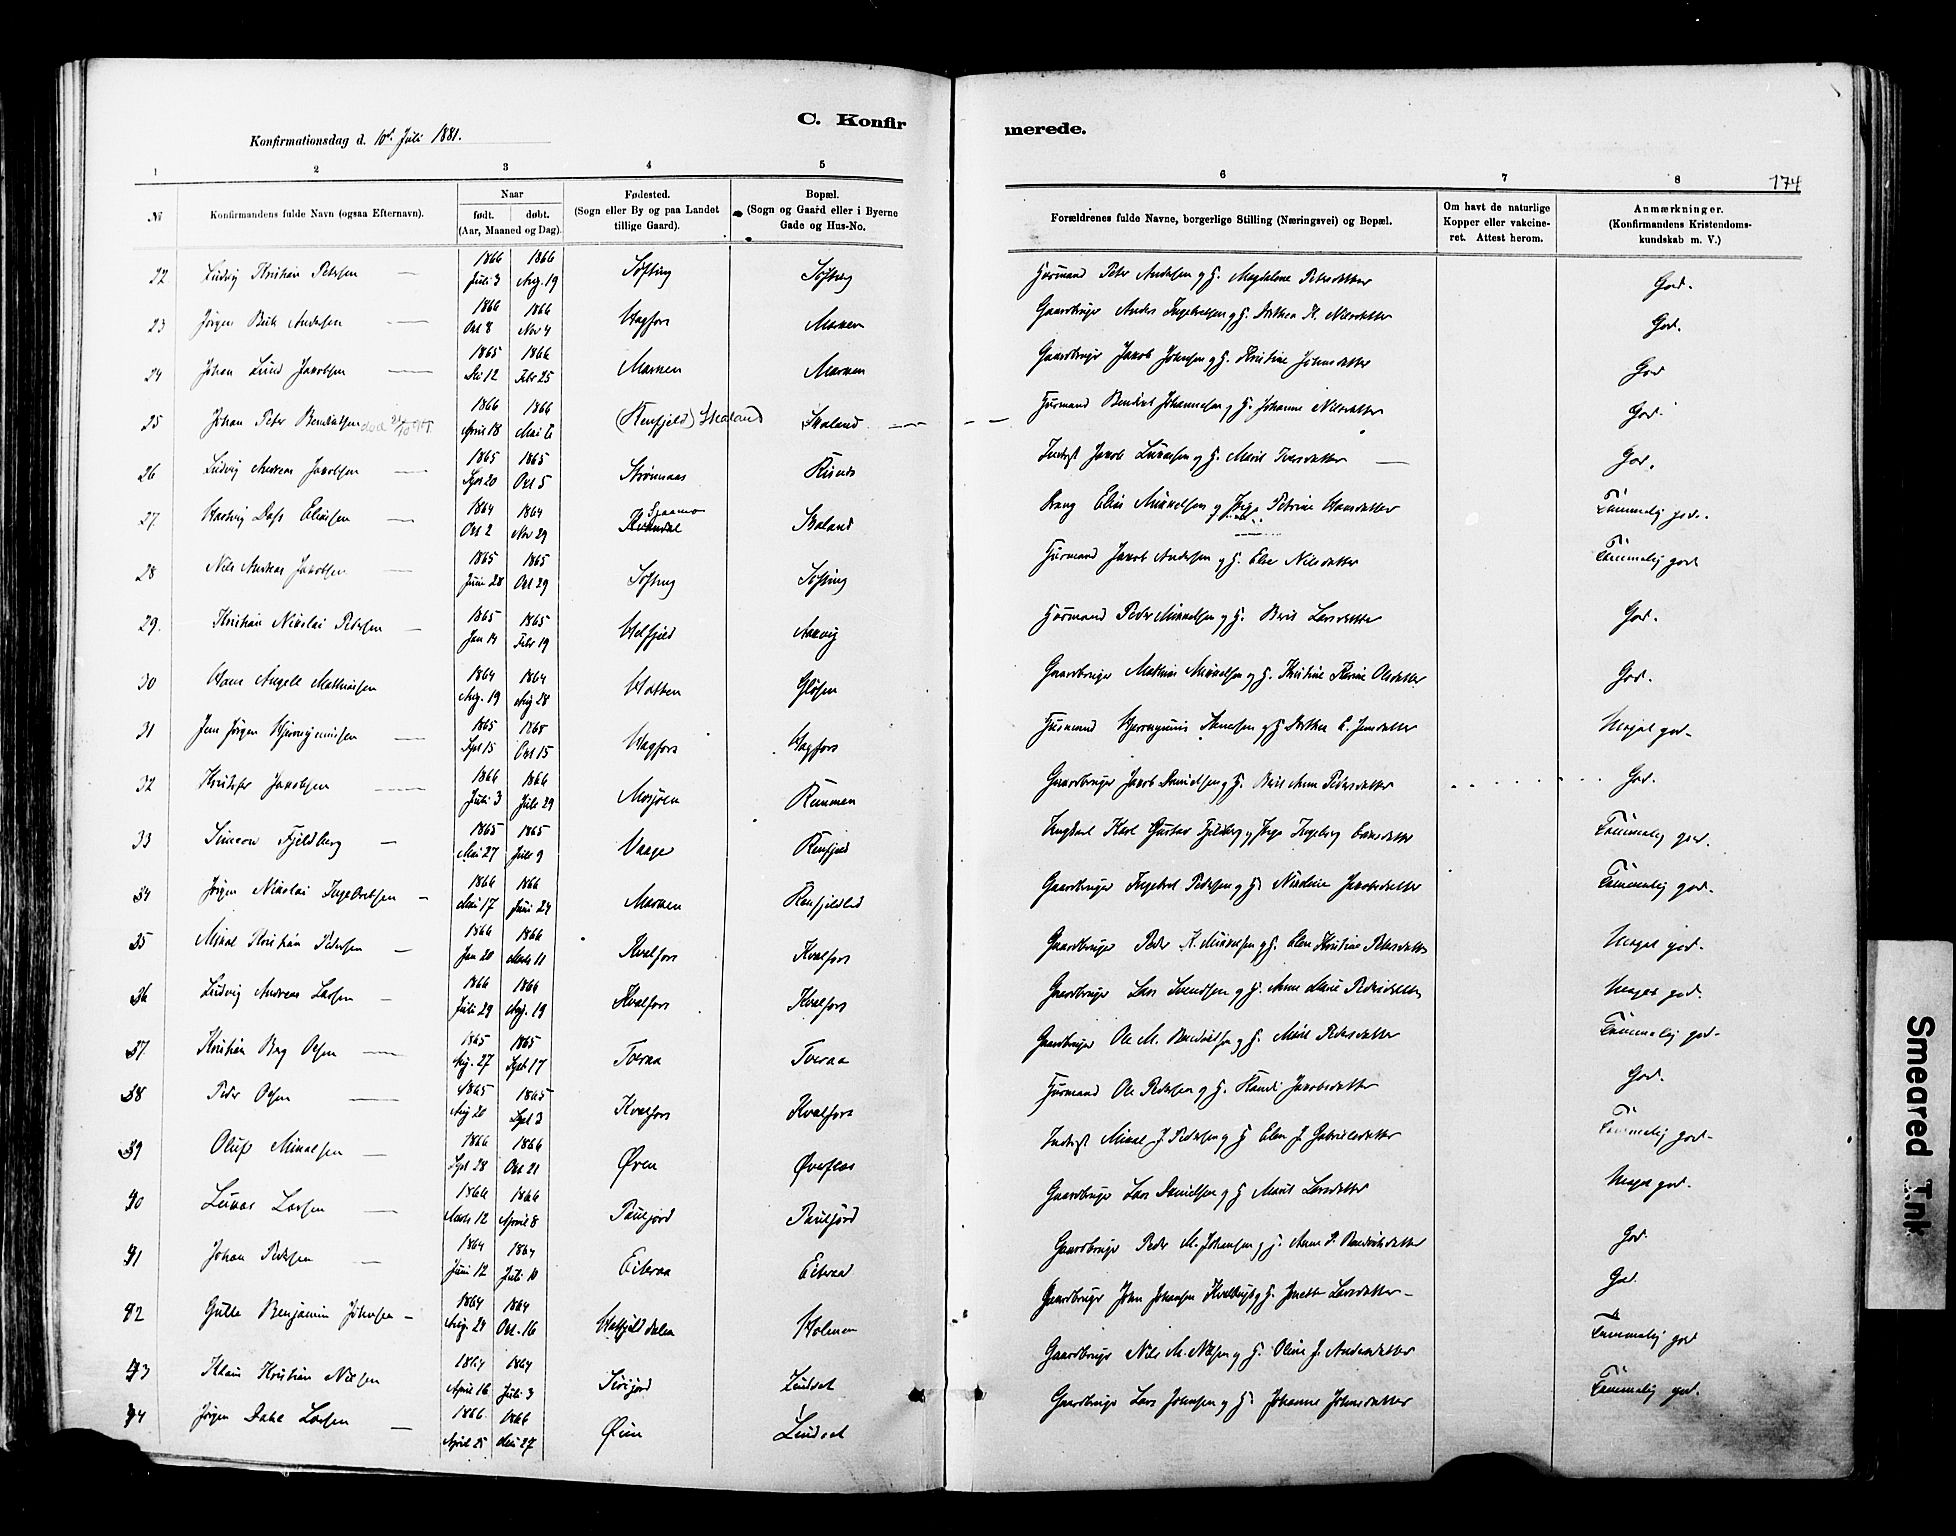 C. Konfirmerede.
Konfirmationsdag d. 10de Juli 1881.
174
1 2 3 4 5 6 7 8
No Konfirmandens fulde Navn (ogsaa Efternavn). Naar født. døbt. (Aar, Maaned og Dag). Fødested. (Sogn eller By og paa Landet tillige Gaard). Bopæl. (Sogn og Gaard eller i Byerne Gade og Hus-No. Forældrenes fulde Navne, borgerlige Stilling (Næringsvei) og Bopæl. Om havt de naturlige Kopper eller vakcineret. Attest herom. Anmærkninger. (Konfirmandens Kristendomskundskab m. V.)
22 Ludvig Kristian Petersen 1866 Juli 3 1866 Aug. 19 Søfting Søfting Husmand Peter Andersen og H. Magdalene Petersdatter God.
23 Jørgen Andersen 1866 Okt 8 1866 Nov 4 Hagfors Marken Gaardbruger Anders Ingebretsen og H. Dorthea Nilsdatter God.
24 Johan Lund Jakobsen 1865 12 1866 Febr 25 Marken Marken Gaardbruger Jakob Johnsen og H. Kristine Johnsdatter God
25 Johan Peter Bendiktsen 1866 April 18 1866 Mai 6 (Renfjeld) Skaland Skaland Husmand Johannesen og H. Johanne Nilsdatter God.
26 Ludvig Andreas Jakobsen 1865 Spt 20 1865 Okt 5 Strømnaas Inderst Jakob og H. Marit Iversdatter God.
27 Hartvig Dass Eliassen 1864 Okt 2 1864 Nov 29 Skaland Elias Mikkelsen og Pige Petrine Hansdatter Temmelig god.
28 Nils Andreas Jakobsen 1865 Juni 28 1865 Okt 29 Søfting Søfting Husmand Jakob Andersen og H. Else Nilsdatter Temmelig god
29. Kristian Nikolai Pedersen 1865 Jan 14 1865 Febr 19 Aakvig Husmand Peder Mikkelsen og H. Berit Larsdatter God.
30 Hans Angell Mathisen 1864 Aug. 19 1864 Aug 28 Hatten Gløsen Gaardbruger Mathias Mikkelsen og H. Kristine Olsdatter God.
31 Jens Jørgen Hjeronymussen 1865 Spt 15 1865 Okt 15 Hagfors Hagfors Husmand Hjeronymus og H. Dorthea Jensdatter Meget god.
32 Kristofer Jakobsen 1866 Juli 3 1866 Juli 29 Mosjøen Gaardbruger Jakob Danielsen og H. Berit Anna Pedersdatter God.
33 Simeon Fjeldberg 1865 Mai 27 1865 Juli 9 Vaage Renfjeld Ungkarl Karl Gustav Fjeldberg og Pige Ingeborg Temmelig god.
34 Jørgen Nikolai Ingebretsen 1866 Mai 17 1866 Juni 24 Marken Renfjeldlid Gaardbruger Ingebret Pedersen og H. Nikoline Jakobsdatter Temmelig god.
35 Mikal Kristian Pedersen 1866 Jan 20 1866 Marts 11 Kvalfors Kvalfors Gaardbruger Peder K. Mikkelsen og H. Elen Kristine Petersdatter Meget god.
36 Ludvig Andreas Larsen 1866 Juli 29 1866 Aug. 19 Kvalfors Kvalfors Gaardbruger Lars Svendsen og H. Anne Marie Pedersdatter Meget god.
37 Kristian Berg Olsen 1865 Aug. 27 1865 Sept 17 Tveraa Tveraa Gaardbruger Ole M. Bendiktsen og H. Marit Pedersdatter Temmelig god.
38 Peder Olsen 1865 Aug 20 1865 Spt 3 Kvalfors Kvalfors Husmand Ole Pedersen og H. Jakobsdatter God.
39 Oluf Mikalsen 1866 Spt 28 1866 Okt 21 Øren Inderst Mikal J. Pedersen og H Elen J. Gabrielsdatter Temmelig god.
40 Lukas Larsen 1866 Marts 12 1866 April 8 Paulfjord Paulfjord Gaardbruger Lars Danielsen og H Marit Larsdatter Meget god.
41 Johan Pedersen 1864 Juni 12 1864 Juli 10 Eiteraa Eiteraa Gaardbruger Peder M. Johansen og H. Anne P. Bendiktsdatter God.
42 Gulle Benjamin Johnsen 1864 Aug. 21 1864 Okt. 16 Hatfjelddalen Holmen Gaardbruger John Johansen og H. Larsdatter God.
43 Klaus Kristian Nilsen 1864 April 16 1864 Juli 3 Lindset Gaardbruger Nils M. Nilsen og H. Oline J. Andersdatter Temmelig god
44 Jørgen Dahl Larsen 1866 April 25 1866 Mai 27 Lindset Gaardbruger Lars Johnsen og H. Johanne Johnsdatter Temmelig god.
Smeared Ink